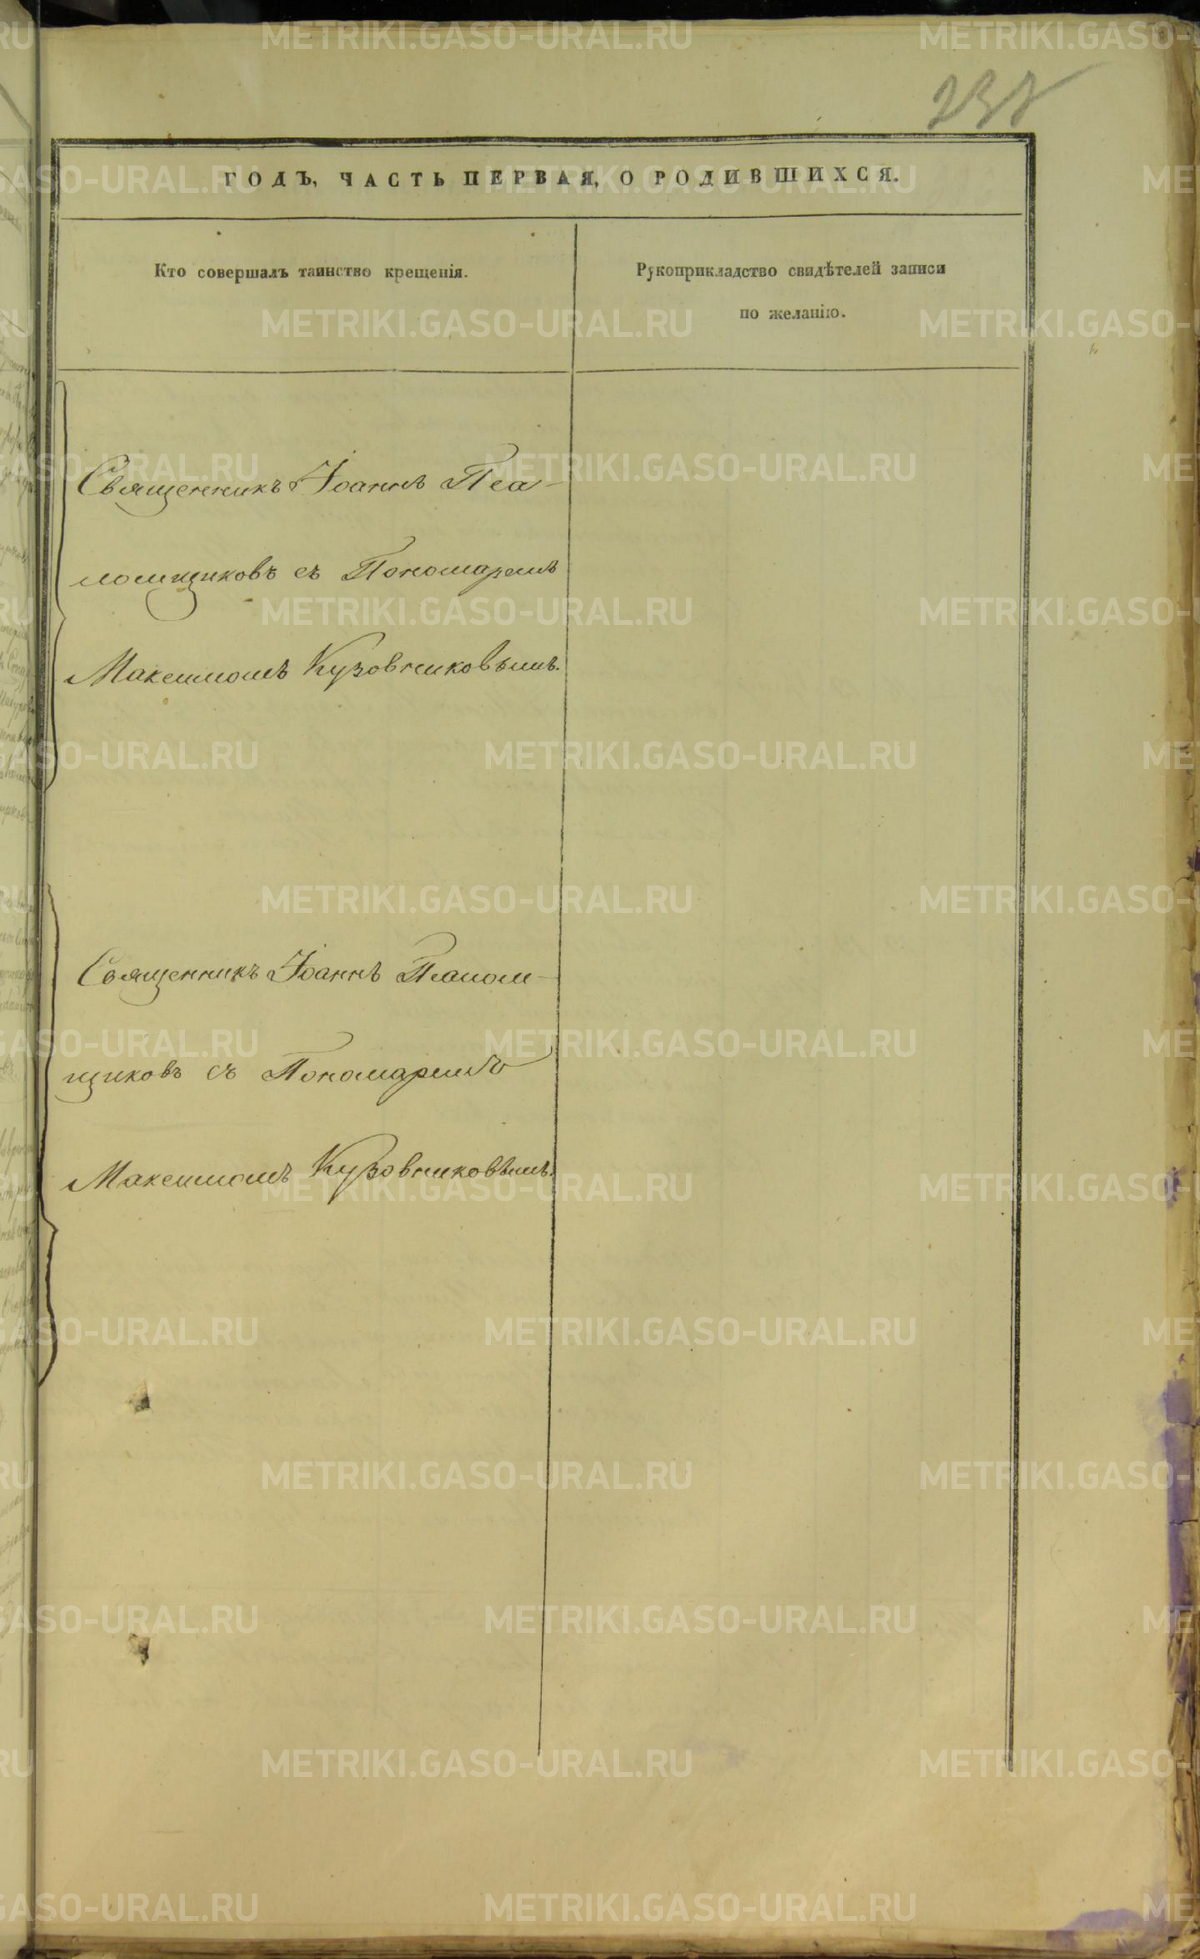 238
ГОДЪ, ЧАСТЬ ПЕРВАЯ, О РОДИВШИХСЯ.
Кто совершалъ таинство крещенія.
Рукоприкладство свидѣтелей записи
по желанію.
Священникъ Іоаннъ Пса-
ломщиковъ съ Пономаремъ
Максимомъ Кузовниковымъ.
Священникъ Іоаннъ Псалом-
щиковъ съ Пономаремъ
Максимомъ Кузовниковымъ.
METRIKI.GASO-URAL.RU